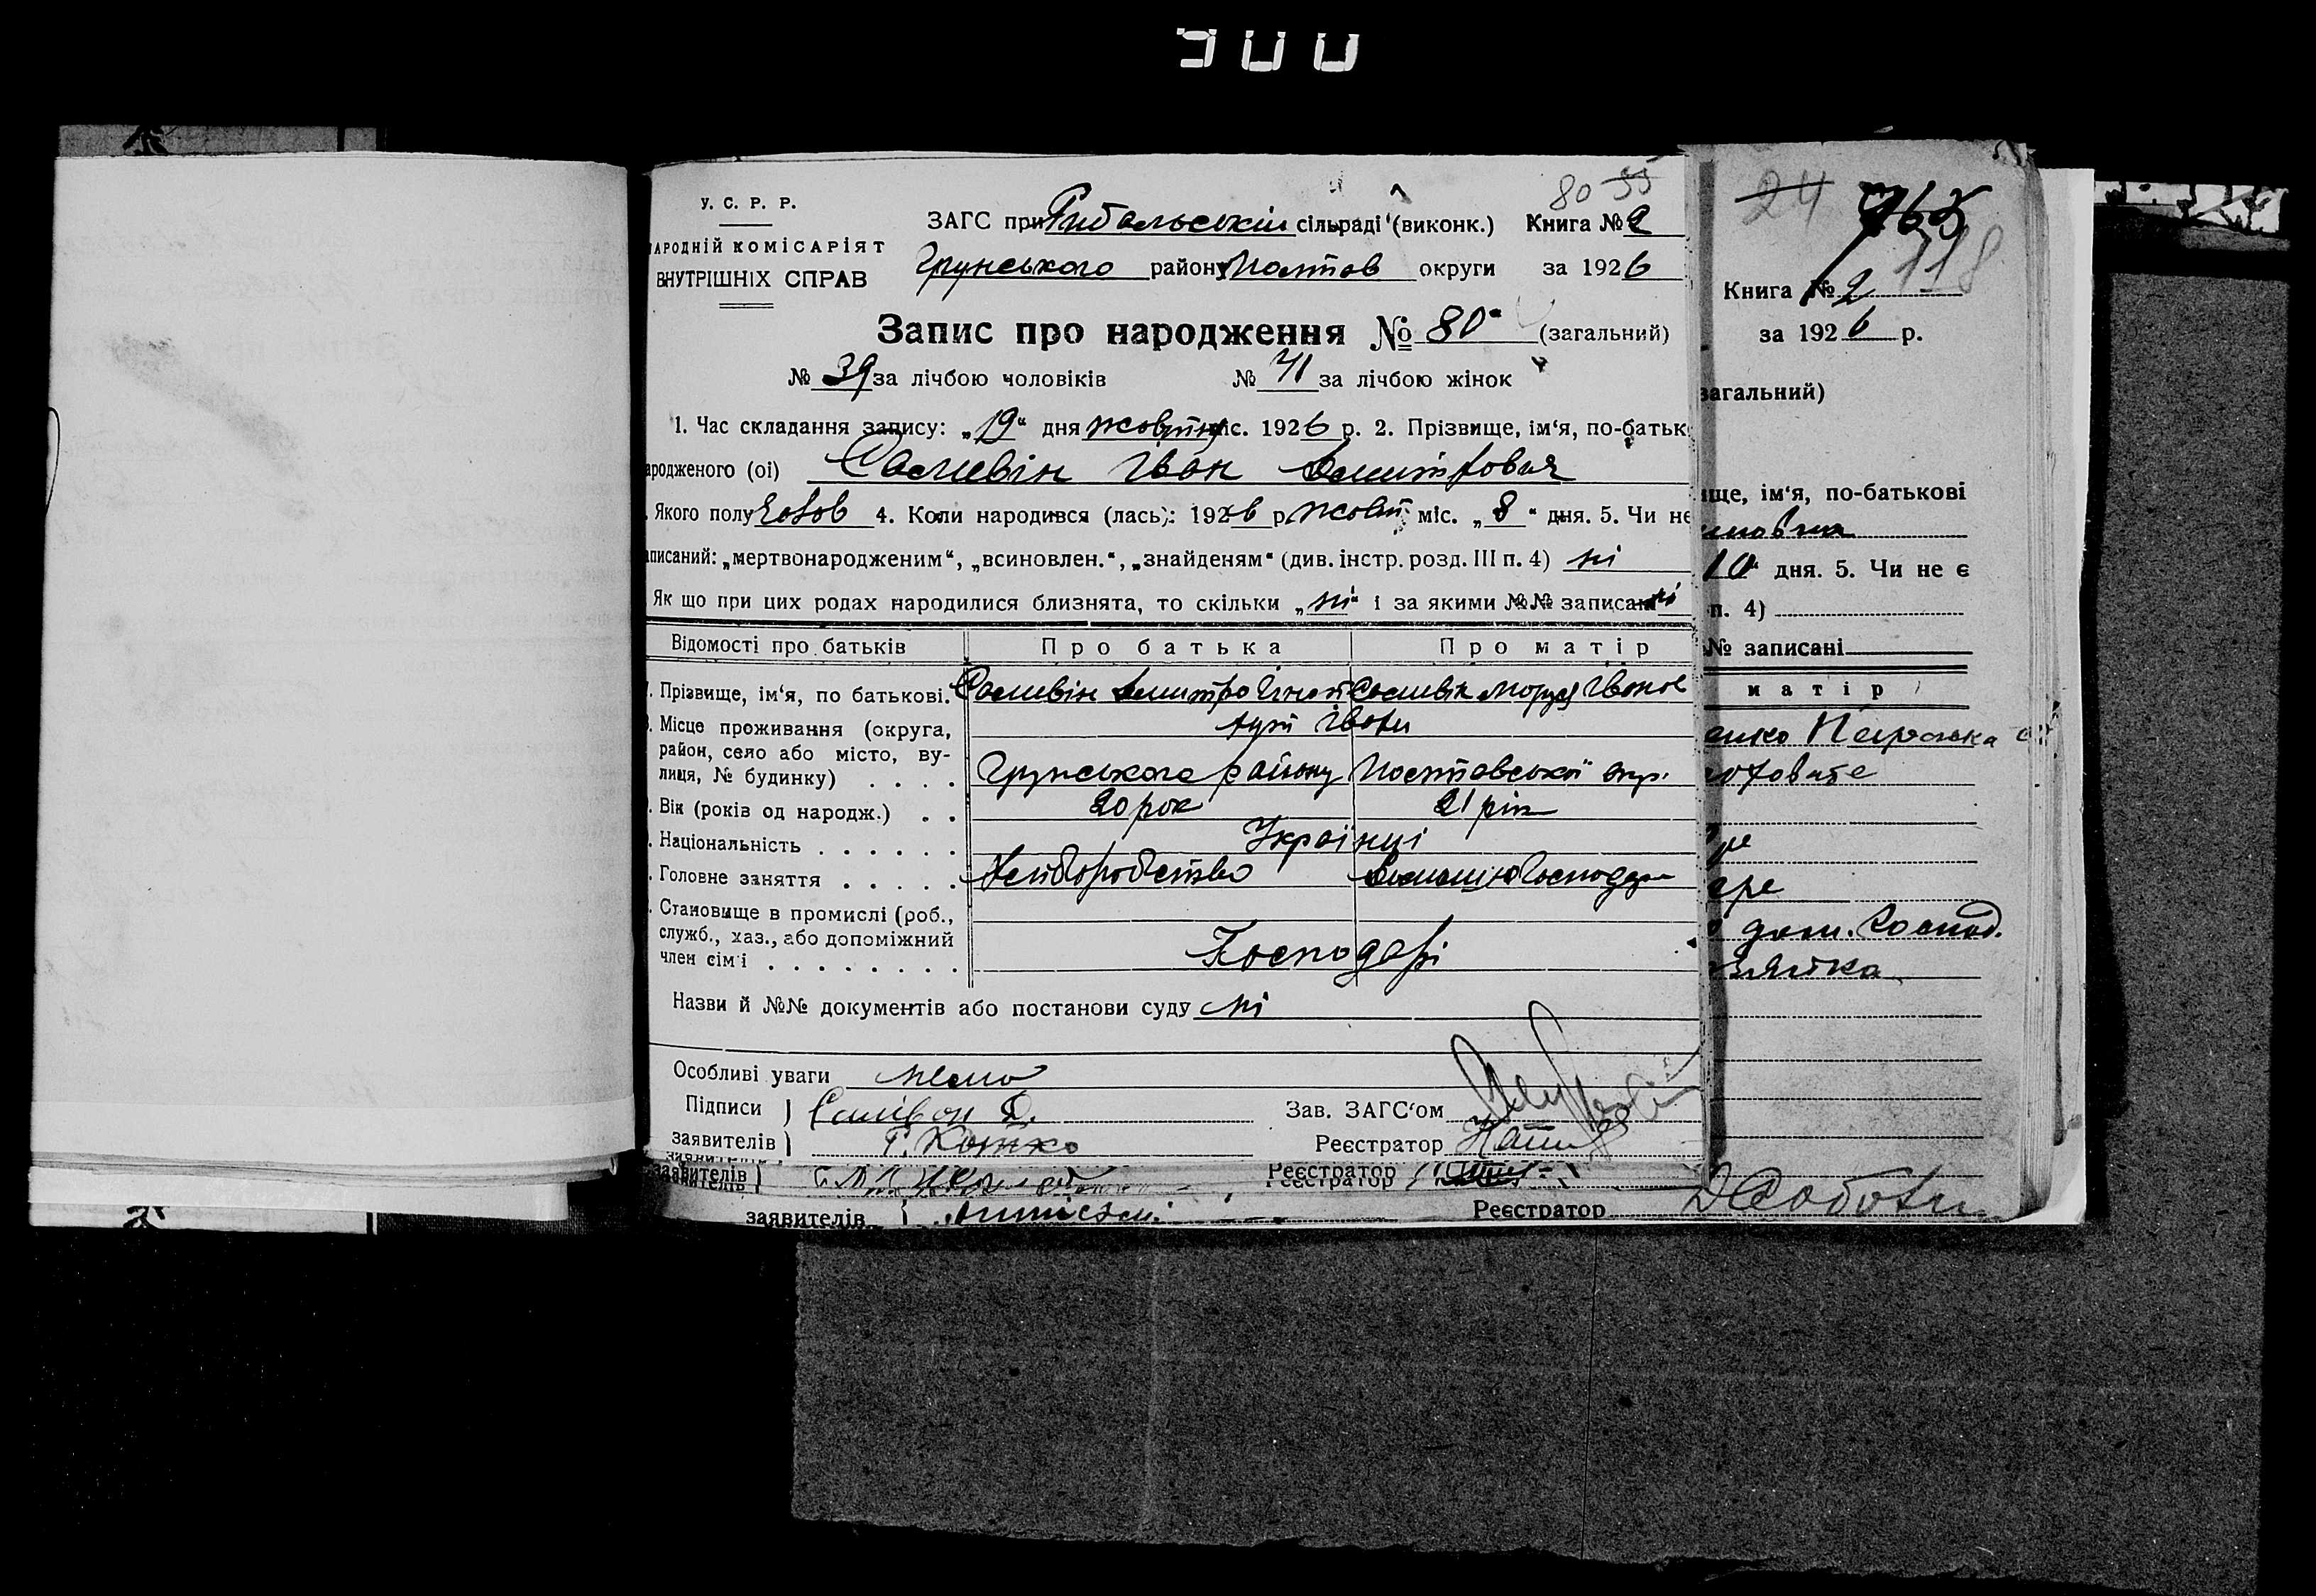 300
80 55
У. С. Р. Р.
ЗАГС при Рибальській сільраді (виконк.) Книга № 2
НАРОДНІЙ КОМІСАРІЯТ
ВНУТРІШНІХ СПРАВ
Грунського району Полтав округи за 1926
Запис про народження № 80 (загальний)
№ 39 за лічбою чоловіків № 41 за лічбою жінок
1. Час складання запису: „19“ дня жовтня міс. 1926 р. 2. Прізвище, ім‘я, по-батьк
ародженого (ої) Саливін Іван Дмитрович
. Якого полу 4. Коли народився (лась): 1926 р. жовт міс. „8“ дня. 5. Чи не
аписаний: „мертвонародженим“, „всиновлен.“, „знайденям“ (див. інстр. розд. III п. 4) ні
Як що при цих родах народилися близнята, то скільки „ні“ і за якими №№ записані ні
Відомості про батьків Про батька Про матір
. Прізвище, ім‘я, по батькові. Саливін Дмитро Гнат Саливін Маруся Іванов
. Місце проживання (округа, район, село або місто, вулиця, № будинку) . . . .
Грунського району Полтавської окр.
. Вік (років од народж.) . . 20 рок 21 рік
. Національність . . . . . . Українці
. Головне заняття . . . . . Хліборобство Домашнє Господар
. Становище в промислі (роб.,
служб., хаз., або допоміжний
член сім‘ї . . . . . . . . Господарі
Назви й №№ документів або постанови суду ні
Особливі уваги нема
Підписи } Салівон Д. Зав. ЗАГС‘ом
заявителів } Г. Котко Реєстратор
заявителів } Реєстратор
заявителів { Реєстратор
24 765
118
Книга № 2
за 1926 р.
загальний)
ище, ім‘я, по-батькові
10“ дня. 5. Чи не є
п. 4)
№ записані
матір
енко Параска
дом. Господ.